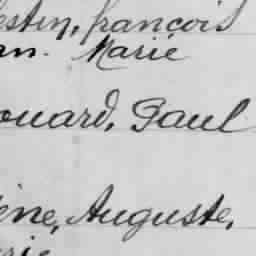 estin, françois
an. Marie
ouard, Paul
ène, Auguste,
rie